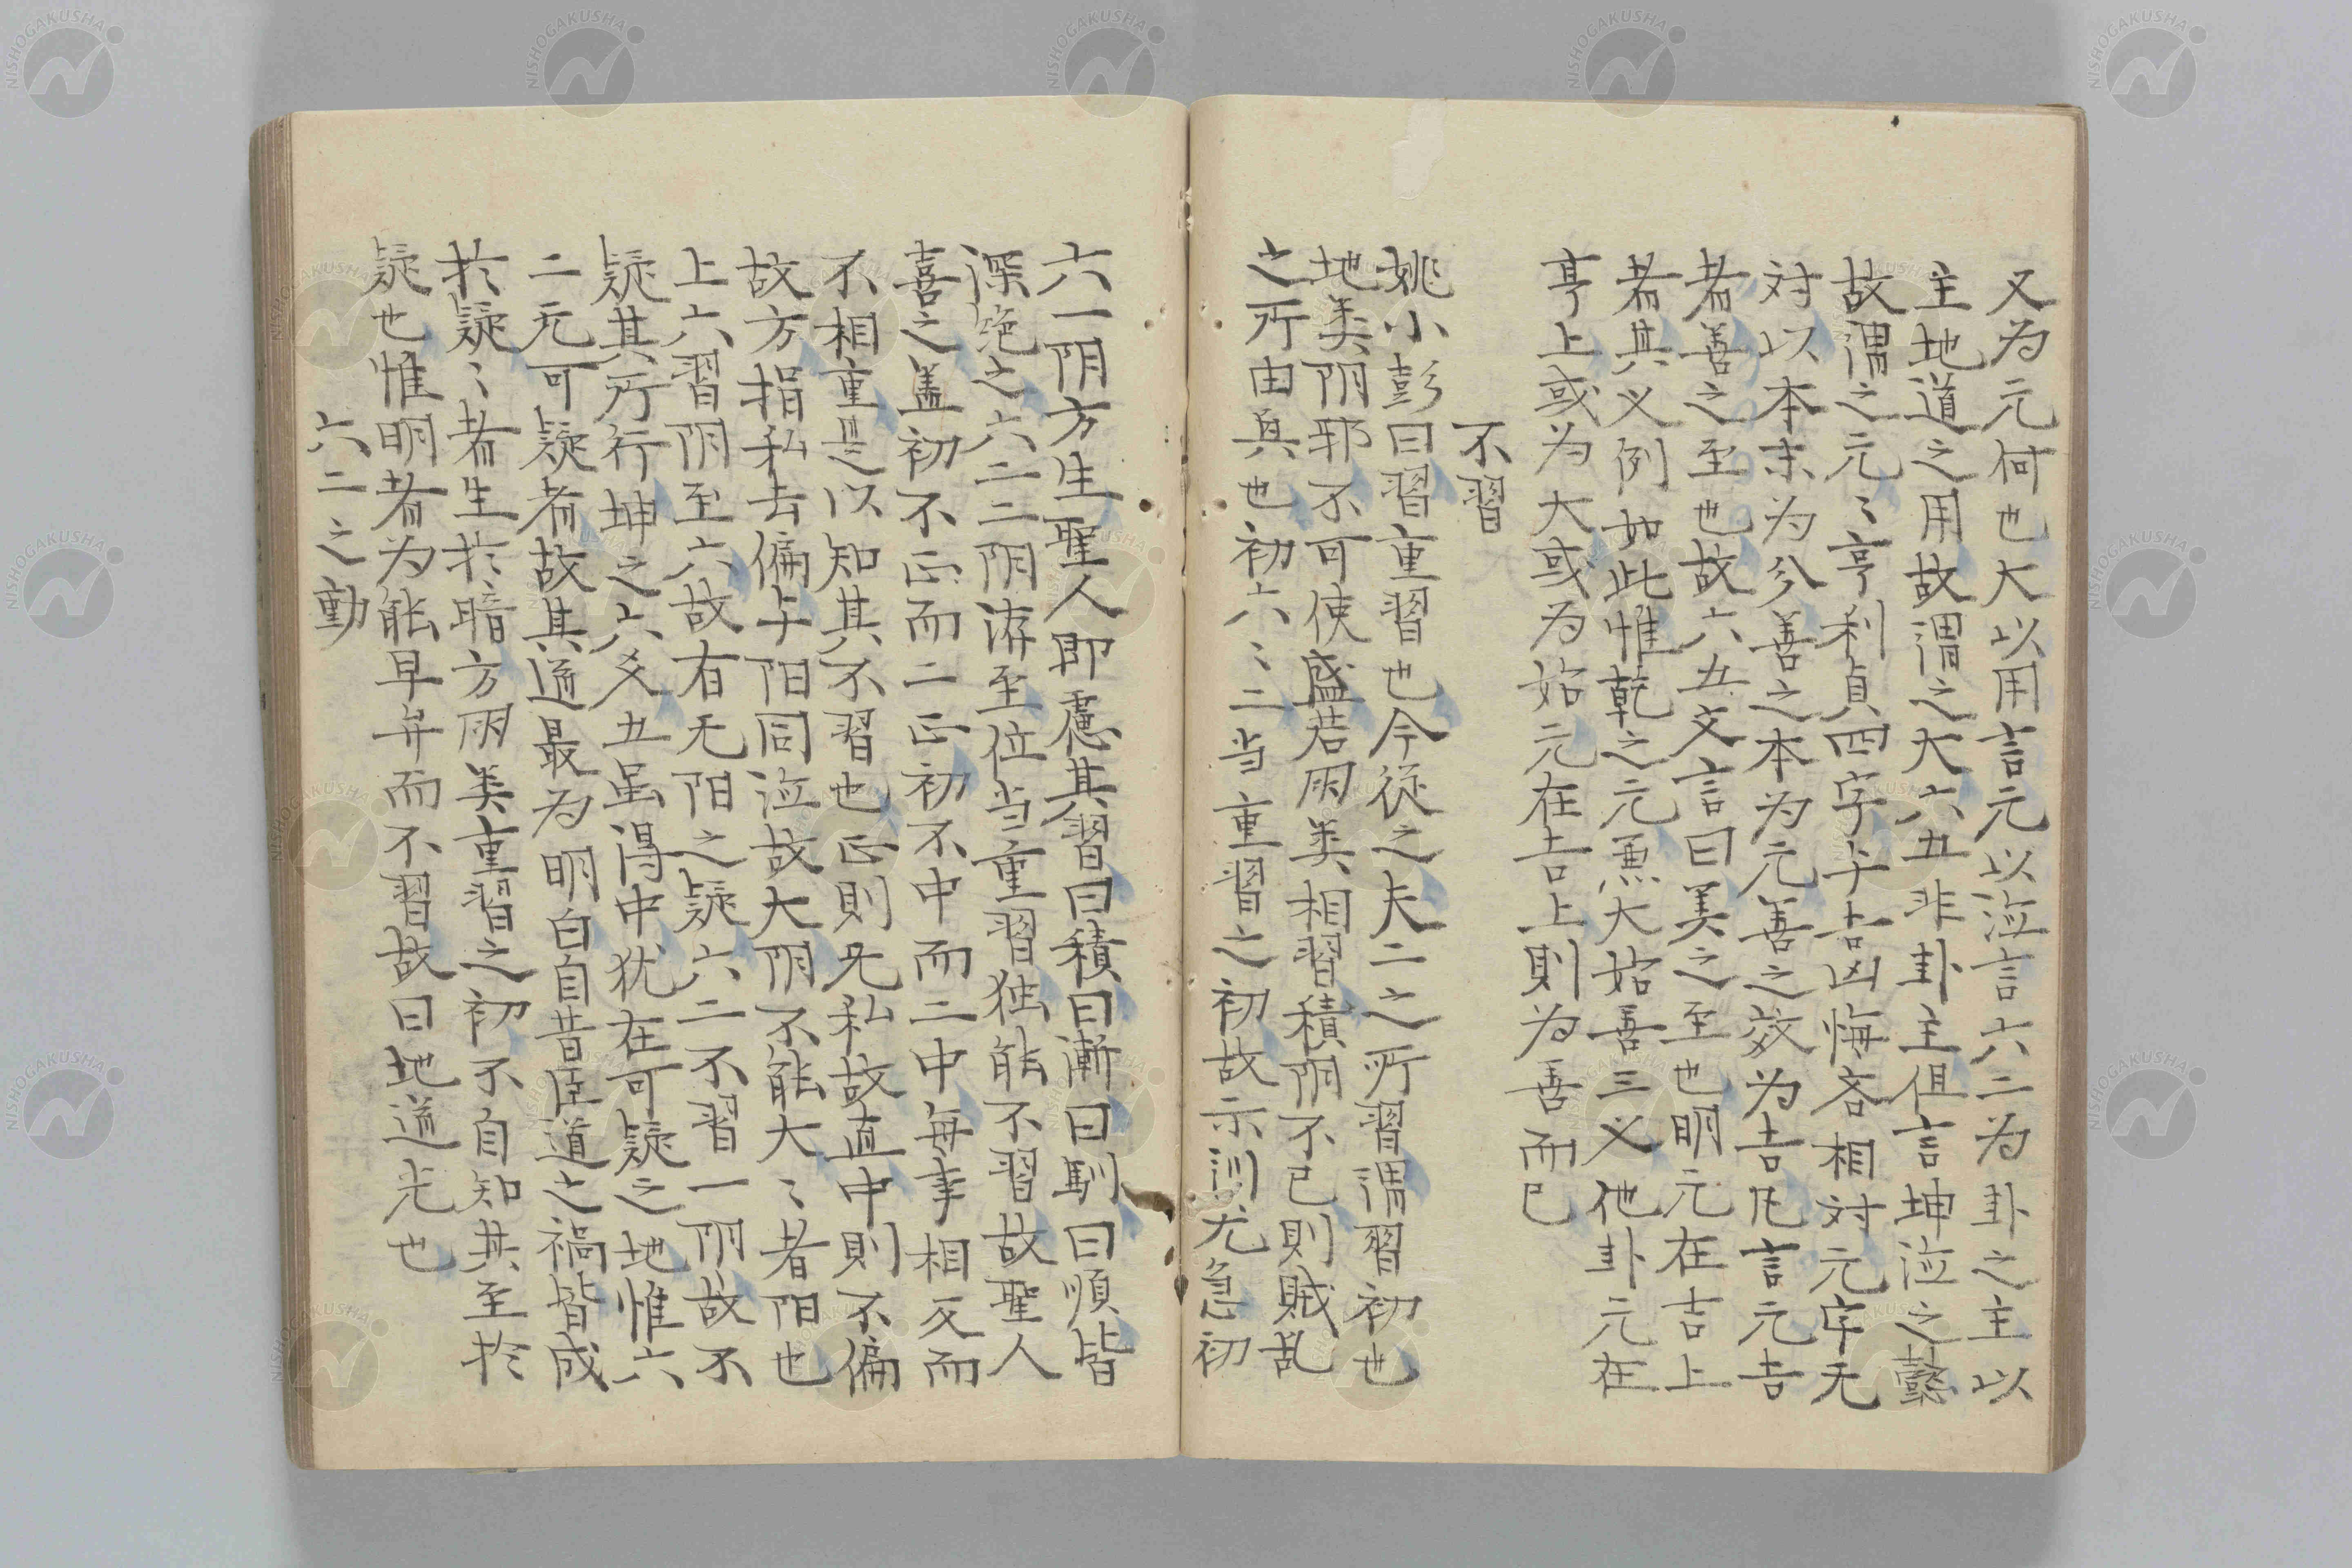 又为元何也大以用言元以涖言六二为卦之主以
主地道之用故谓之大六五非卦主但言坤涖之懿
故谓之元〻亨利貞四字与吉凶悔吝相対元字无
対以本末为分善之本为元善之效为吉凡言元吉
者善之至也故六五文言曰美之至也明元在吉上
者其义例如此惟乾之元兼大始善三义他卦元在
亨上或为大或为始元在吉上則为善而已
不習
姚小彭曰習重習也今従之夫二之所習谓習初也
地类阴邪不可使盛若朋类相習積阴不已則賊乱
之所由興也初六〻二当重習之初故示训尤急初
六一阴方生聖人即慮其習曰積曰漸曰馴曰順皆
深绝之六二二阴洊至位当重習独能不習故聖人
喜之盖初不正而二正初不中而二中每事相反而
不相重是以知其不習也正則无私故直中則不偏
故方捐私去偏与阳同涖故大阴不能大〻者阳也
上六習阴至六故有无阳之疑六二不習一阴故不
疑其所行坤之六爻五虽得中犹在可疑之地惟六
二无可疑者故其道最为明白自昔臣道之禍皆成
扵疑〻者生扵暗方朋类重習之初不自知其至扵
疑也惟明者为能早弁而不習故曰地道光也
六二之動